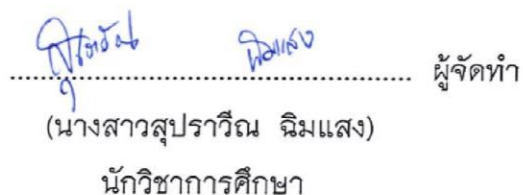 ผู้จัดทำ
(นางสาวสุปราวีณ ฉิมแสง)
นักวิชาการศึกษา